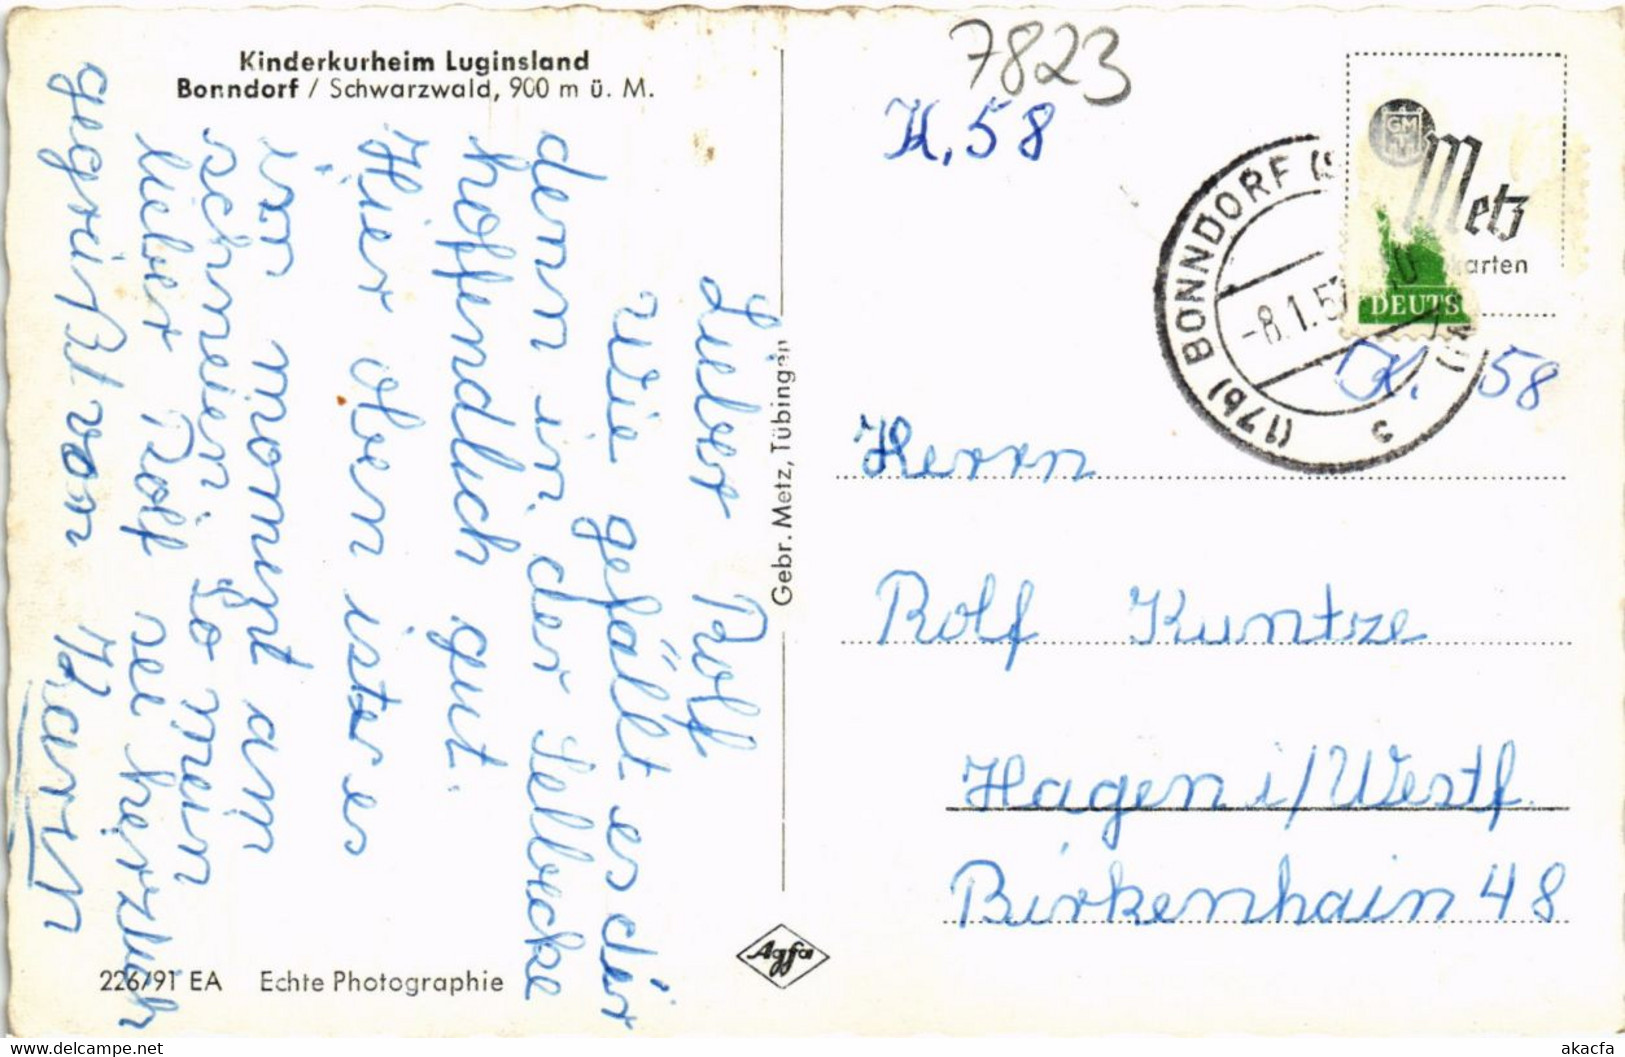 Kinderkurheim Luginsland
Bonndorf / Schwarzwald, 900 m ü. M.
Lieber Rolf
Wie gefällt es dir
denn in der Selbecke
hoffendlich gut.
Hier oben ist es es
von moment am
schneien. So mein
lieber Rolf sei herzlich
gegrüßt von Karen
226/91 EA Echte Photographie
Gebr. Metz, Tübingen
Agfa
7823
K. 58
(17b) BONNDORF (S
-8.1.5
c
GM
Metz
karten
DEUTS
K. 58
Herrn
Rolf Kuntze
Hagen i/Westf.
Birkenhain 48
akacfa